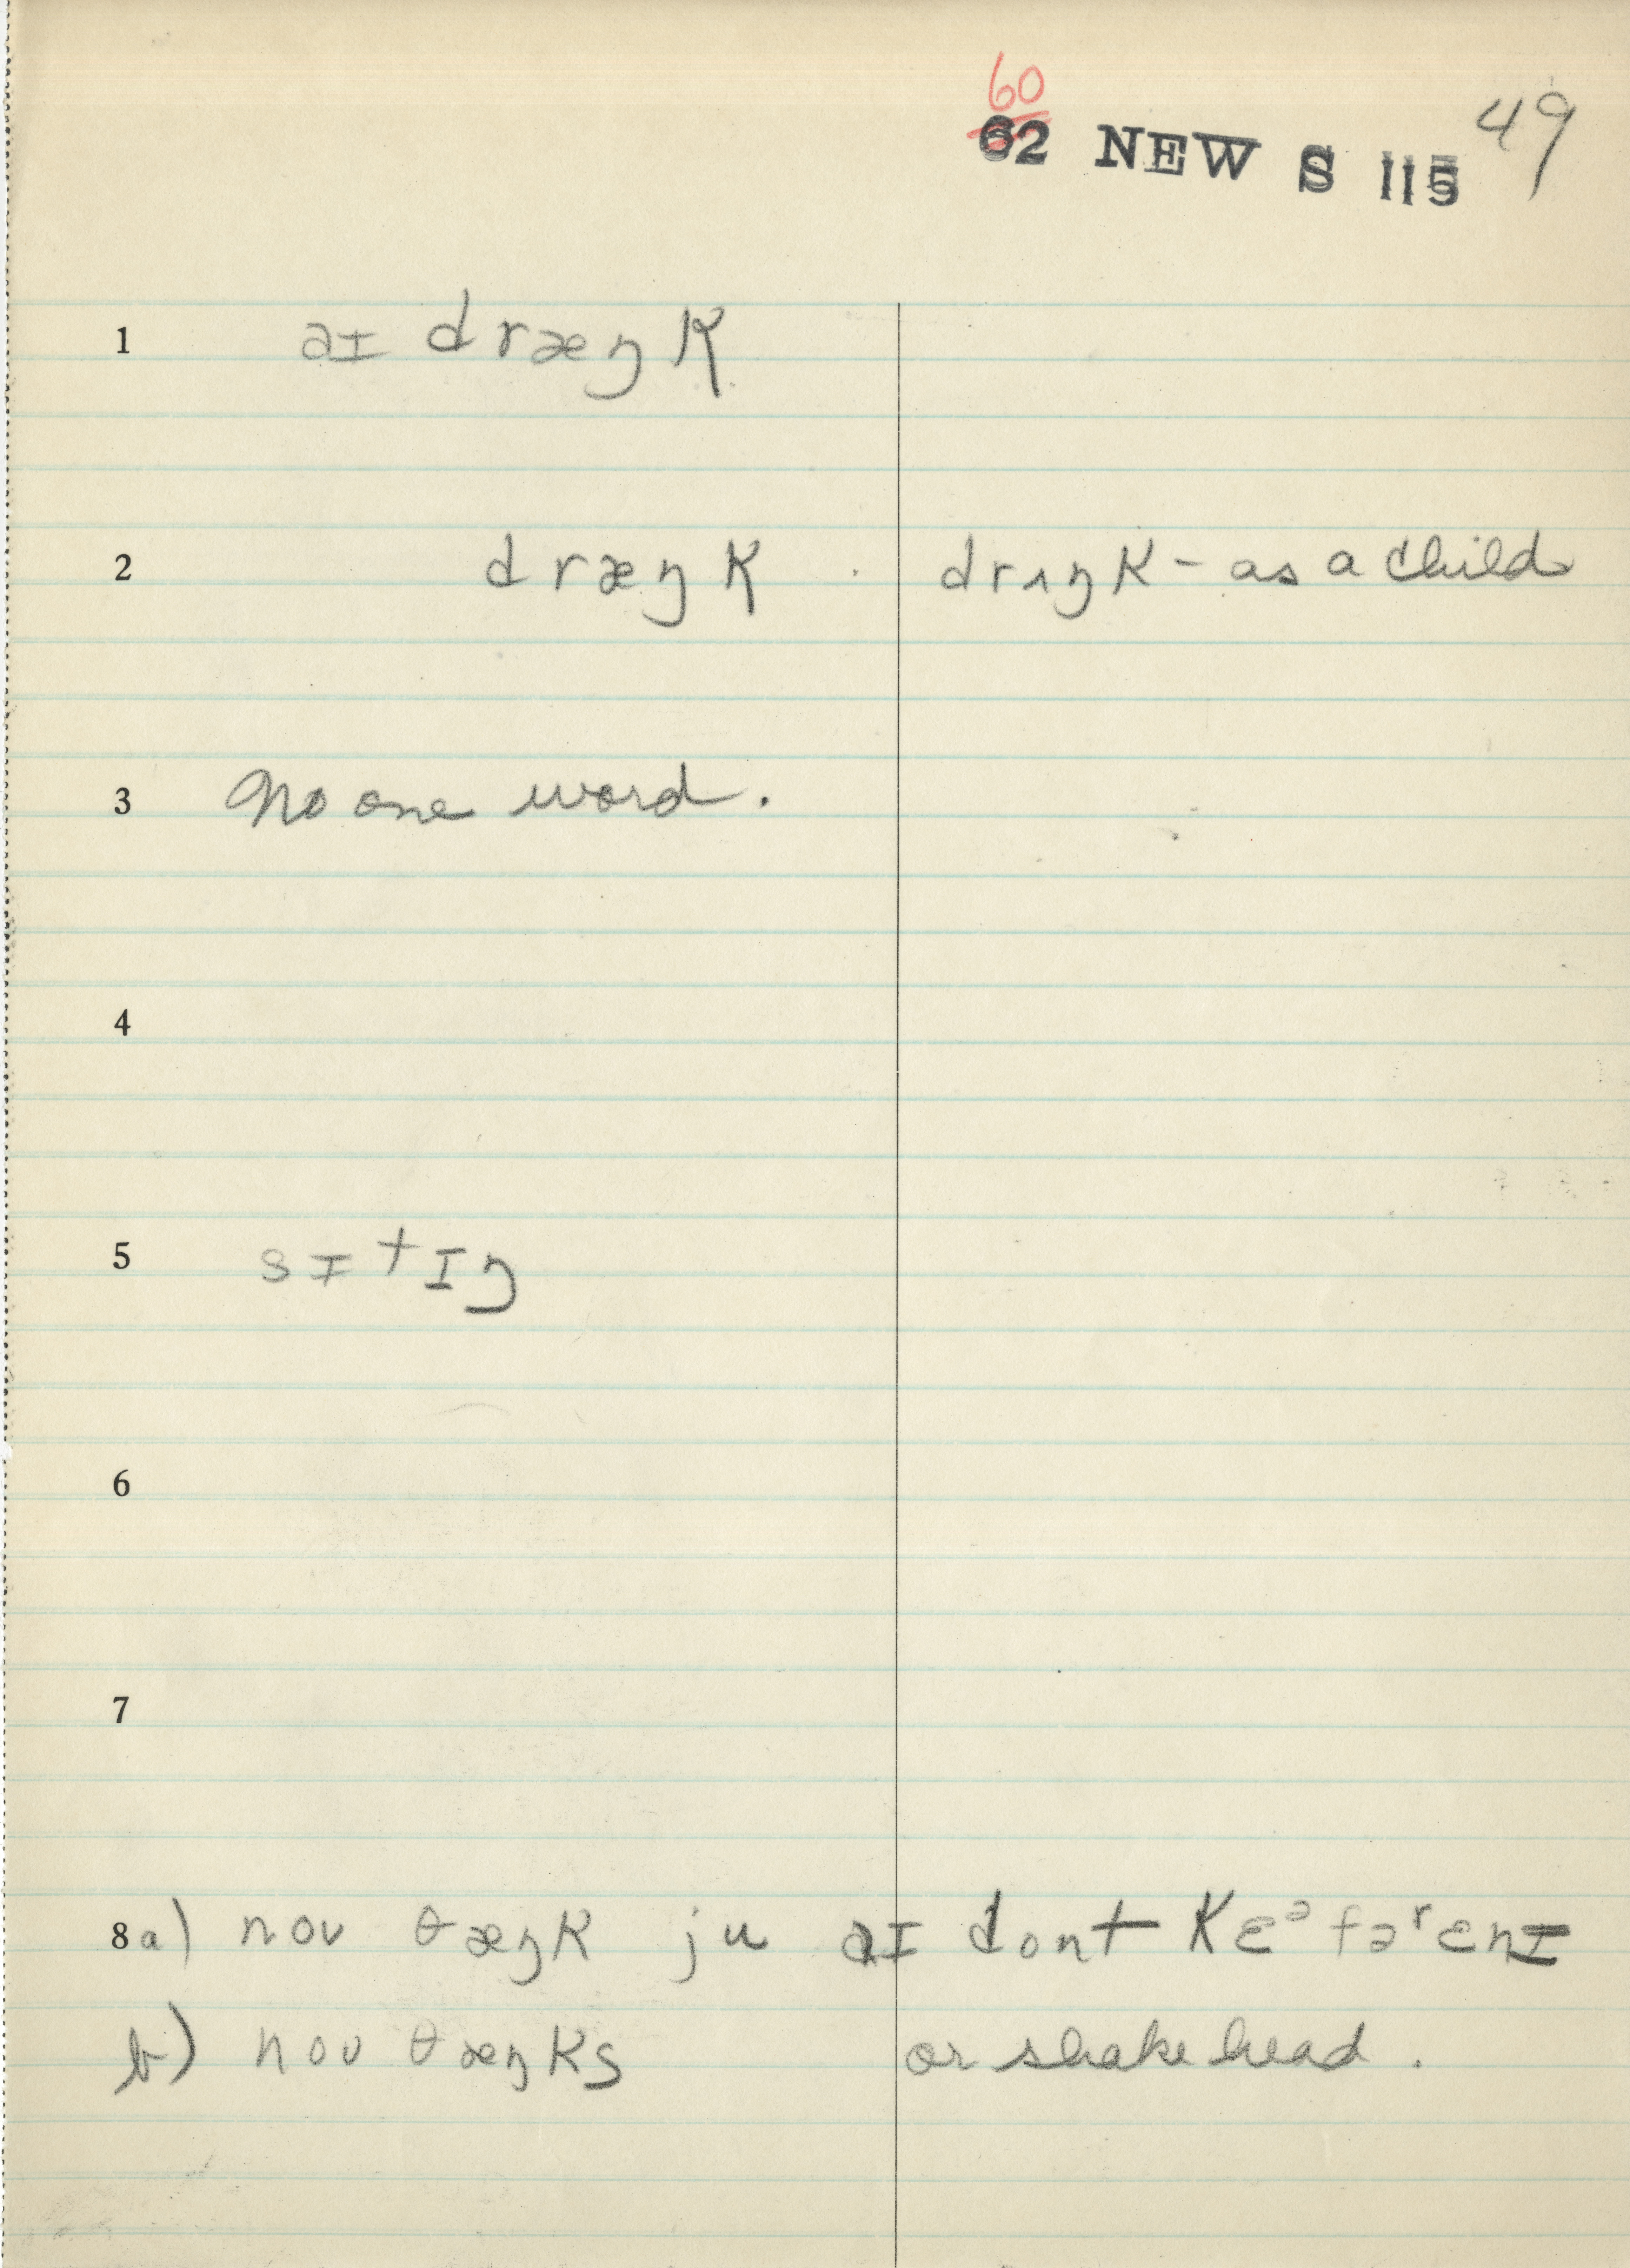 60
62 NEW S 115 49
1 aɪ dræŋk
2 dræŋk drʌŋk - as a child
3 No one word.
4
5 sɪtɪŋ
6
7
8 a) noʊ θæŋk ju aɪ dont kɛᵊ fəʳ ɛnɪ
b) noʊ θæŋks or shake head.